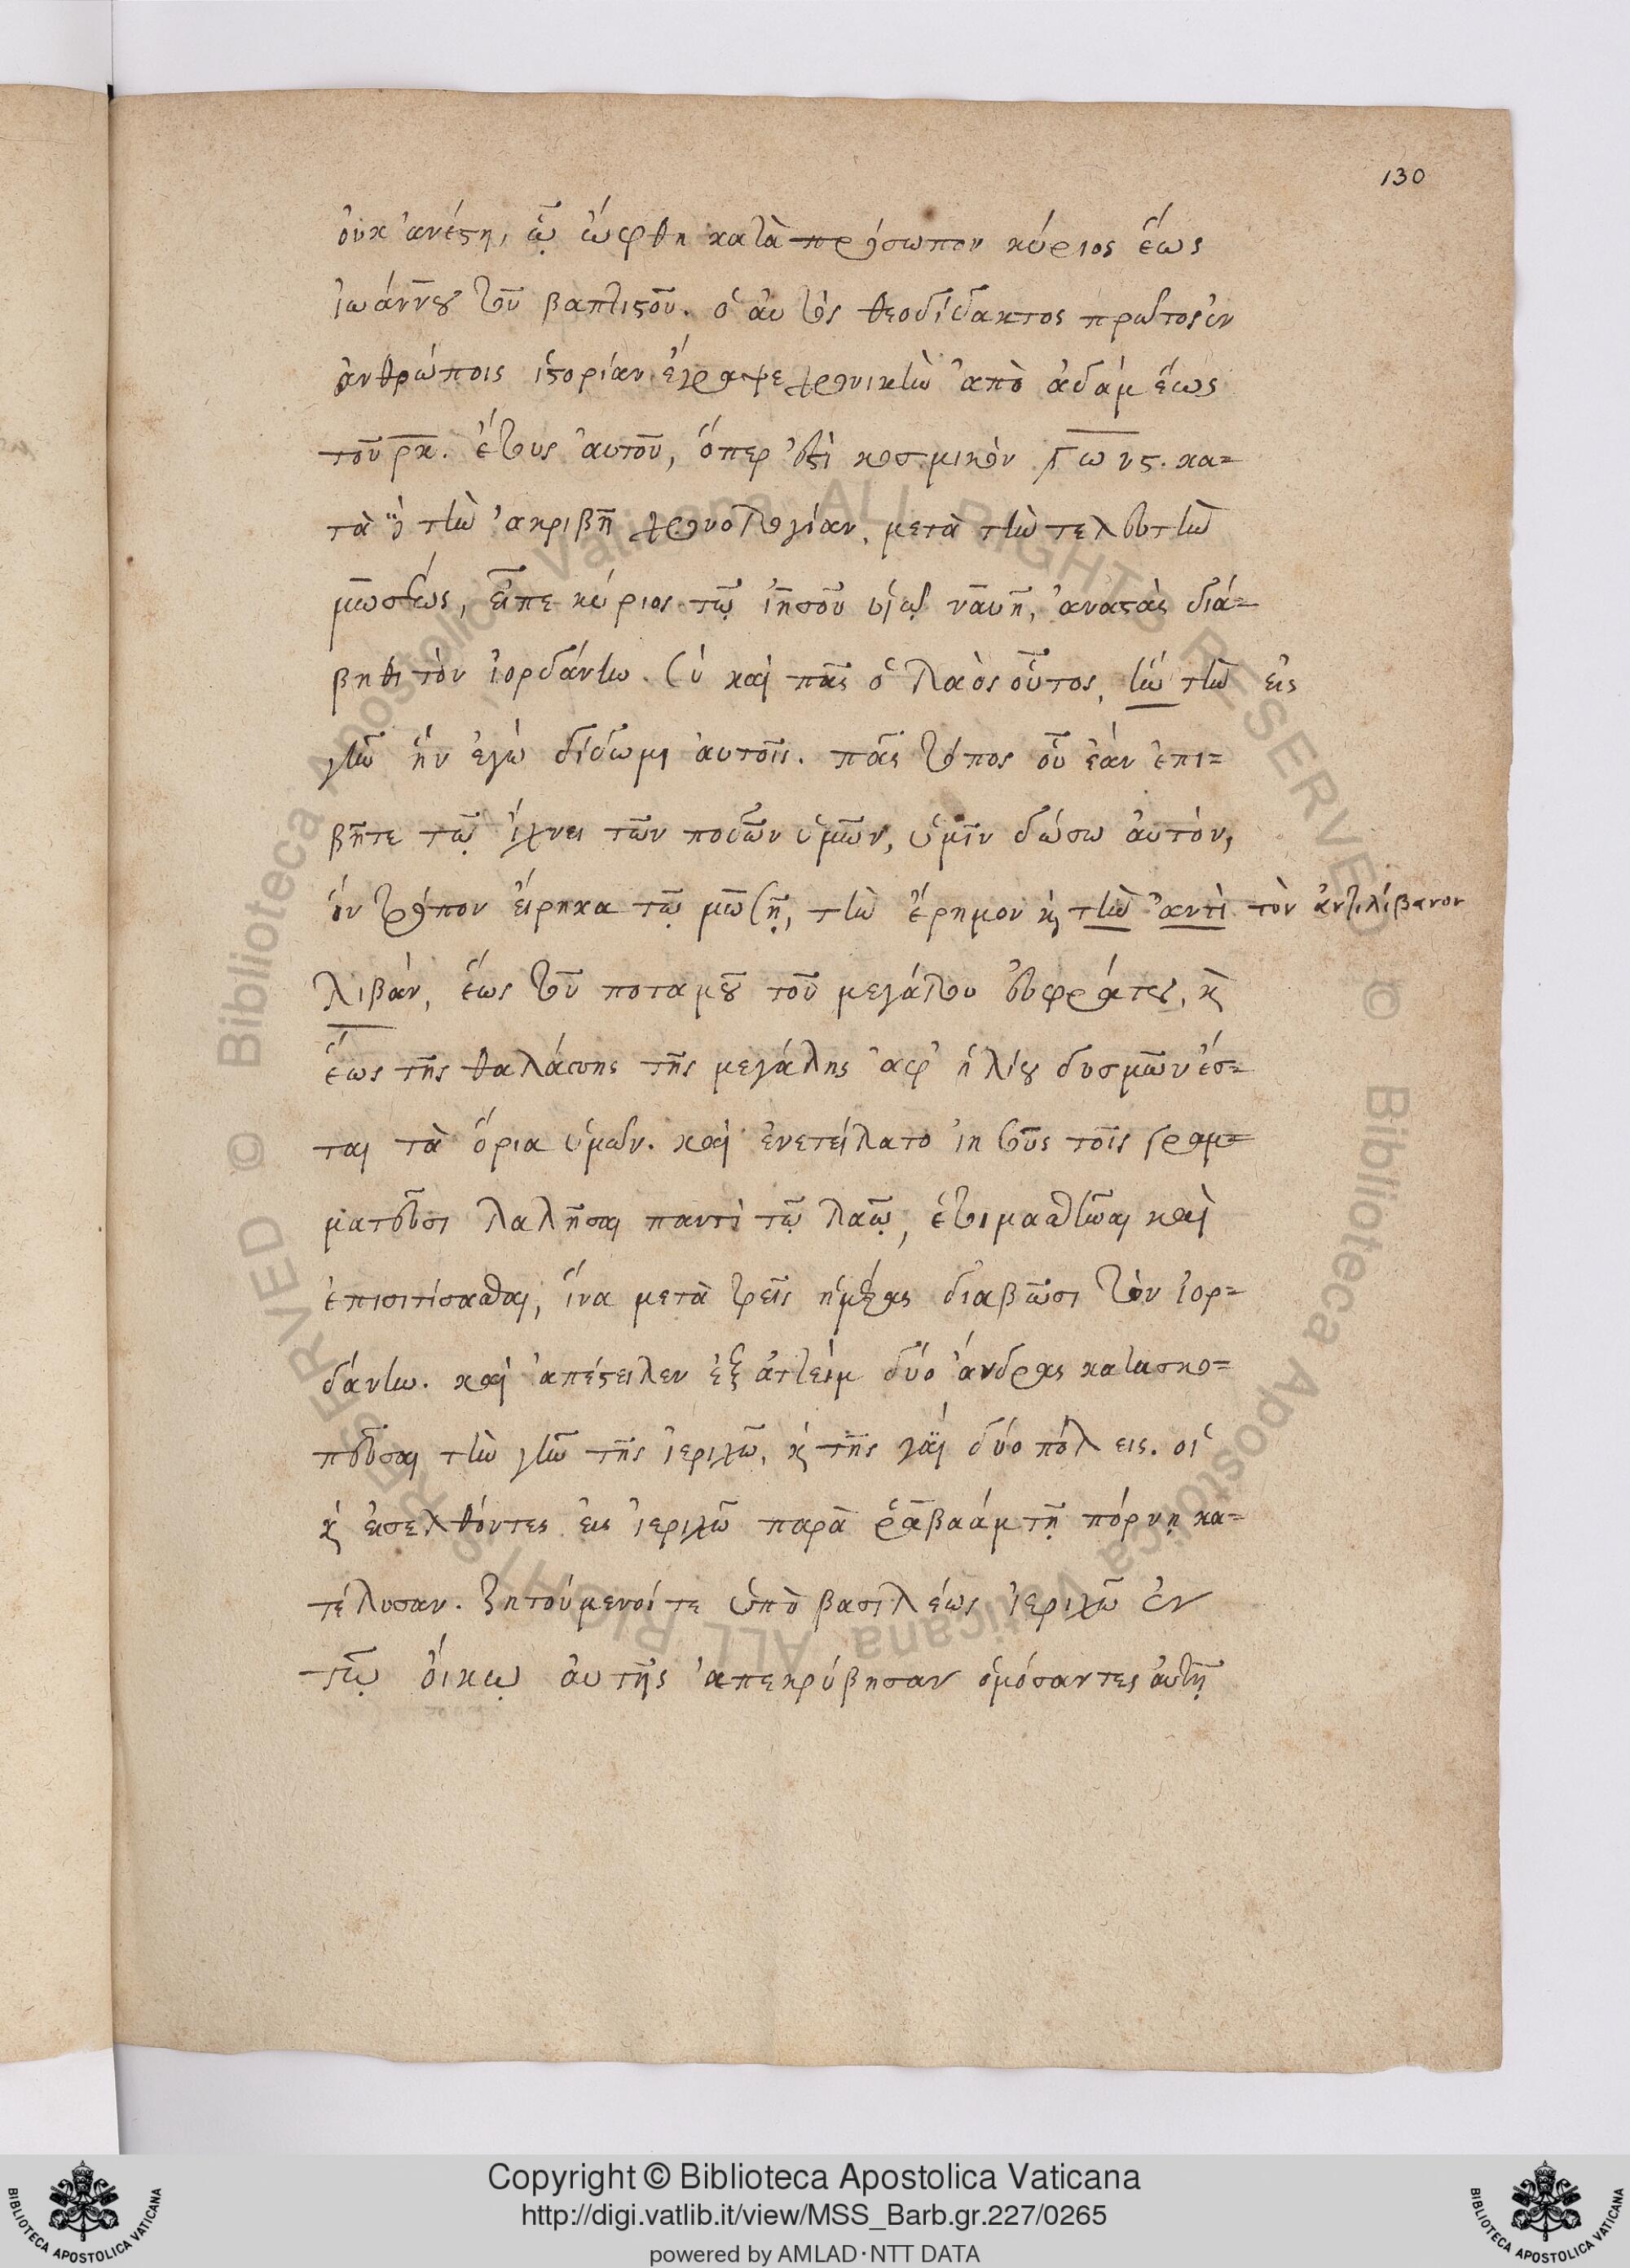 130
οὐκ ἀνέστη, ᾧ ὤφθη κατὰ πρόσωπον κύριος ἕως
ἰωάννου τοῦ βαπτιστοῦ. ὁ αὐτὸς θεοδίδακτος πρῶτος ἐν
ἀνθρώποις ἱστορίαν ἔγραψε χρονικὴν ἀπὸ ἀδὰμ ἕως
τοῦ ρκ. ἔτους αὐτοῦ, ὅπερ ἐστὶ κοσμικὸν γωνς. κα=
τὰ τὴν ἀκριβῆ χρονολογίαν. μετὰ τὴν τελευτὴν
μωσέως, εἶπε κύριος τῷ ἰησοῦ υἱῷ ναυῆ, ἀναστὰς διά=
βηθι τὸν ἰορδάνην. σὺ καὶ πᾶς ὁ λαὸς οὗτος, τὴν εἰς
γῆν ἣν ἐγὼ δίδωμι αὐτοῖς. πᾶς τόπος οὗ ἐὰν ἐπι=
βῆτε τῷ ἴχνει τῶν ποδῶν ὑμῶν, ὑμῖν δώσω αὐτὸν,
ὃν τρόπον εἴρηκα τῷ μωσῇ, τὴν ἔρημον καὶ τὴν ἀντὶ τὸν ἀντιλίβανον
λιβάν, ἕως τοῦ ποταμοῦ τοῦ μεγάλου εὐφράτου, καὶ
ἕως τῆς θαλάσσης τῆς μεγάλης ἀφ' ἡλίου δυσμῶν ἔσ=
ται τὰ ὅρια ὑμῶν. καὶ ἐνετείλατο ἰησοῦς τοῖς γραμ=
ματεῦσι λαλῆσαι παντὶ τῷ λαῷ, ἑτοιμασθῆναι καὶ
ἐπισιτίσασθαι, ἵνα μετὰ τρεῖς ἡμέρας διαβῶσι τὸν ἰορ=
δάνην. καὶ ἀπέστειλεν ἐξ ἀττεὶμ δύο ἄνδρας κατασκο=
πεῦσαι τὴν γῆν τῆς ἰεριχῶ, καὶ τῆς γαὶ δύο πόλεις. οἱ
καὶ εἰσελθόντες εἰς ἰεριχῶ παρὰ ῥαβαάμ τῇ πόρνῃ κα=
τέλυσαν. ζητούμενοί τε ὑπὸ βασιλέως ἰεριχῶ ἐν
τῷ οἴκῳ αὐτῆς ἀπεκρύβησαν ὀμόσαντες αὐτῇ
Copyright © Biblioteca Apostolica Vaticana
http://digi.vatlib.it/view/MSS_Barb.gr.227/0265
powered by AMLAD·NTT DATA